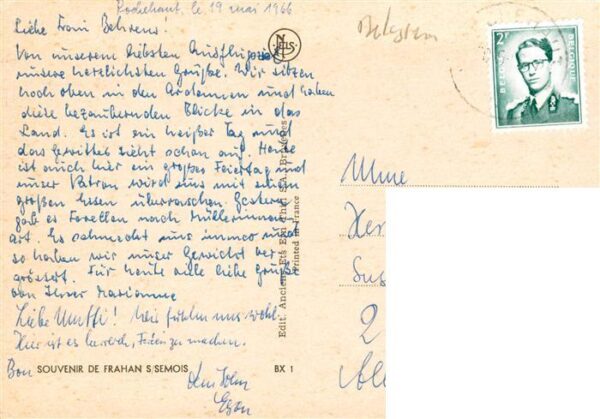 Rochehaut, le 19 mai 1966
Liebe Frau Behrens!
Von unserem liebsten Ausflugsziel
unsere herzlichsten Grüße. Wir sitzen
hoch oben in den Ardennen und haben
diese bezaubernden Blicke in das
Land. Es ist ein heißer Tag und
das Gewitter zieht schon auf. Heute
ist auch hier ein großer Feiertag und
unser Patron wird uns mit einem
großen Essen überraschen. Gestern
gab es Forellen nach Müllerinnen
art. Es schmeckt uns immer und
so haben wir unser Gewicht ver-
grössert. Für heute viele liebe Grüße
von Ihrer Marianne
Liebe Mutti! Wir fühlen uns wohl.
Hier ist es herrlich, Ferien zu machen.
SOUVENIR DE FRAHAN S/SEMOIS BX 1
Dein Sohn
Egon
NELS
Edit. Anciens Ets Ern. Thill, S.A., Bruxelles
Printed in France
2F
BELGIE
BELGIQUE
2